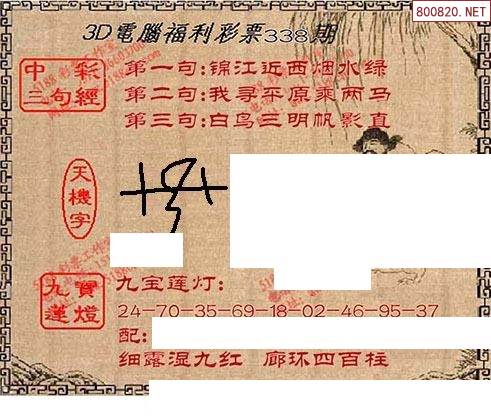 800820.NET
3D電腦福利彩票338期
中彩
三句經
第一句:锦江近西烟水绿
第二句:我寻平原乘两马
第三句:白鸟三明帆影直
天機字
九寶
蓮燈
九宝莲灯:
24-70-35-69-18-02-46-95-37
配:
细露湿九红 廊环四百柱